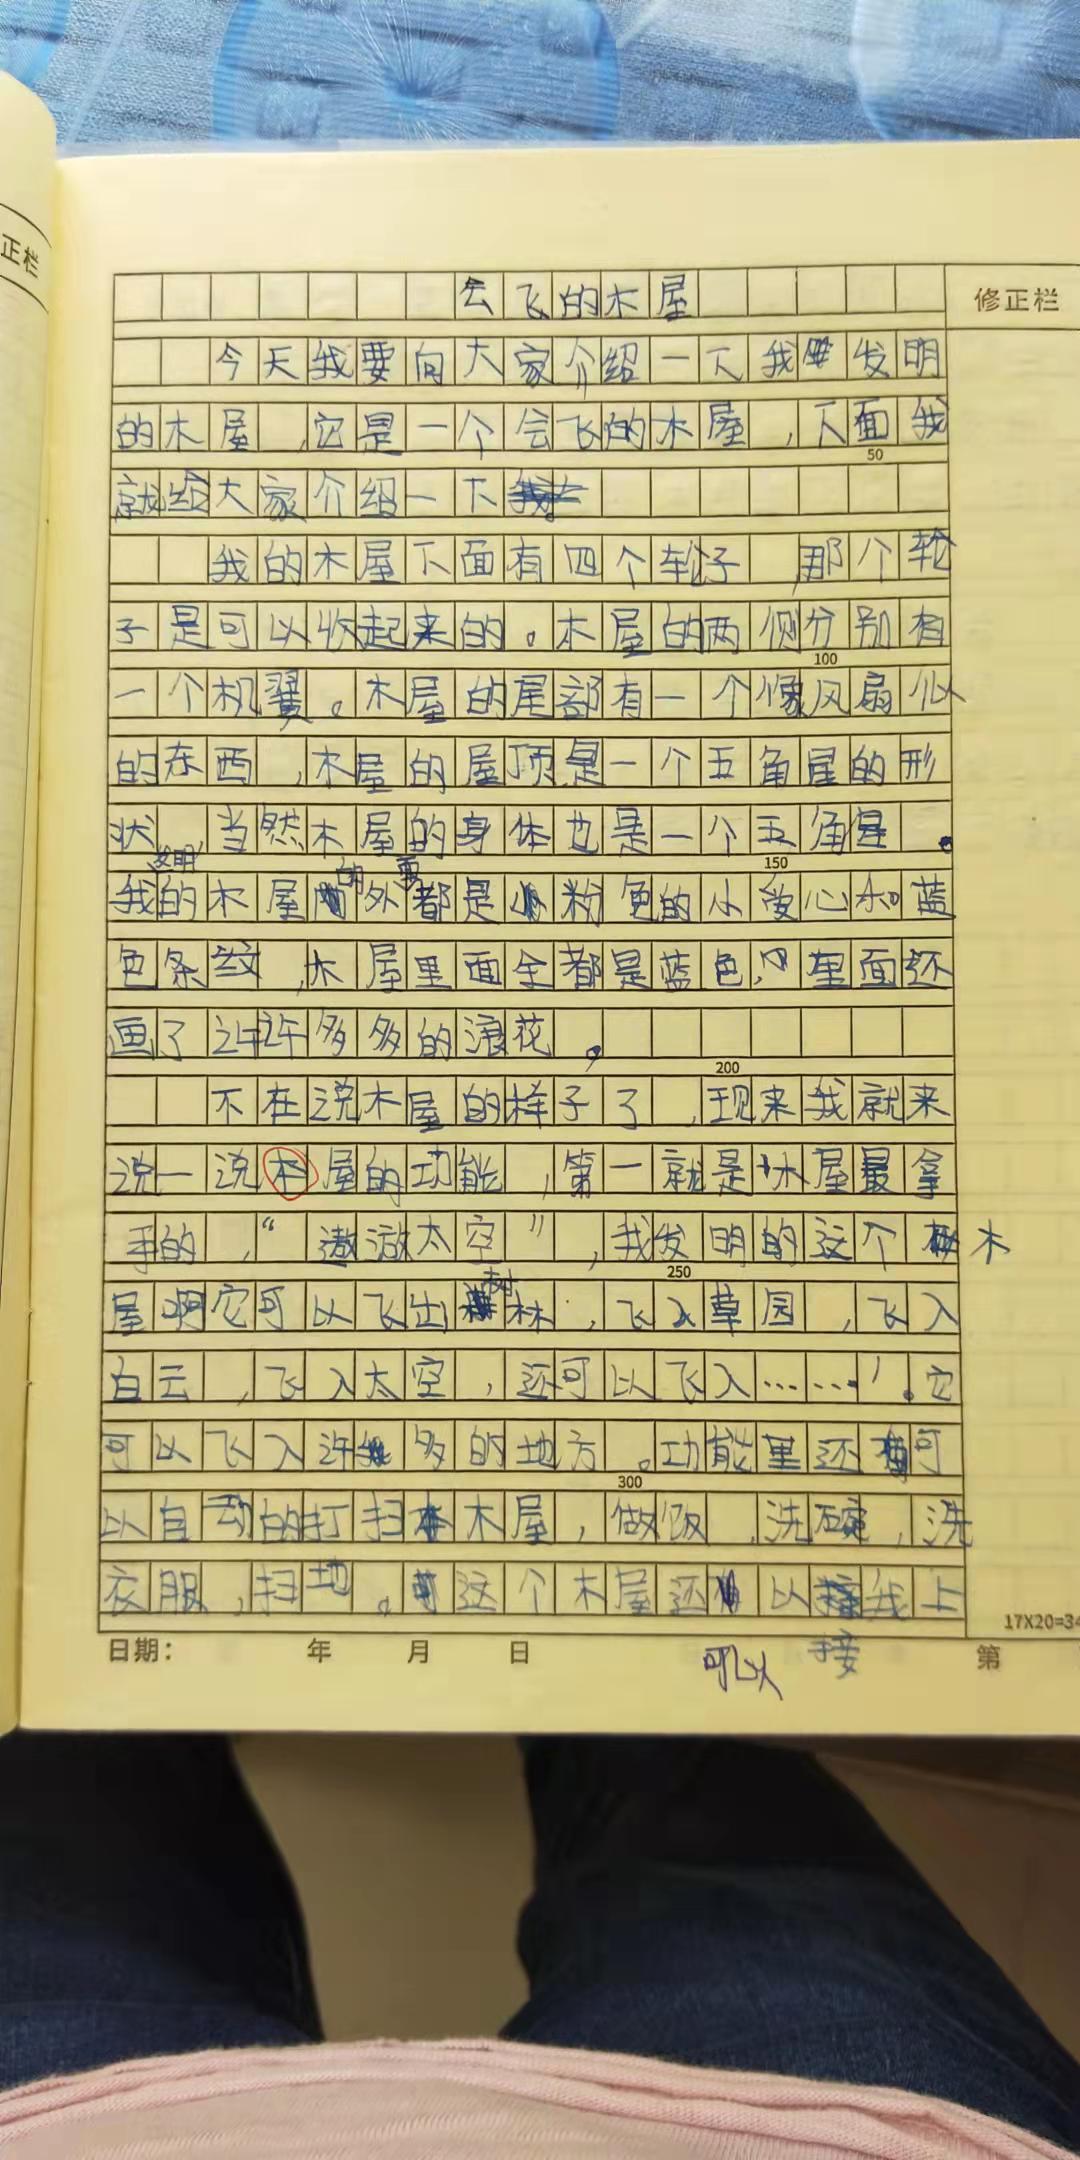 正栏
会飞的木屋
修正栏
今天我要向大家介绍一下我发明
的木屋,它是一个会飞的木屋,下面我
50
就给大家介绍一下
我的木屋下面有四个轮子,那个轮
子是可以收起来的。木屋的两侧分别有
100
一个机翼。木屋的尾部有一个像风扇似
的东西,木屋的屋顶是一个五角星的形
状,当然木屋的身体也是一个五角星。
150
我的木屋的外都是粉色的小爱心和蓝
色条纹,木屋里面全都是蓝色,里面还
画了许许多多的浪花。
200
不在说木屋的样子了,现来我就来
说一说木屋的功能,第一就是木屋最拿
手的,“遨游太空”,我发明的这个木
250
屋啊它可以飞出树林,飞入草园,飞入
白云,飞入太空,还可以飞入……。它
可以飞入许多的地方。功能里还可
300
以自动的打扫木屋,做饭,洗碗,洗
衣服,扫地。这个木屋还可以接我上
17X20=34
日期: 年 月 日 第